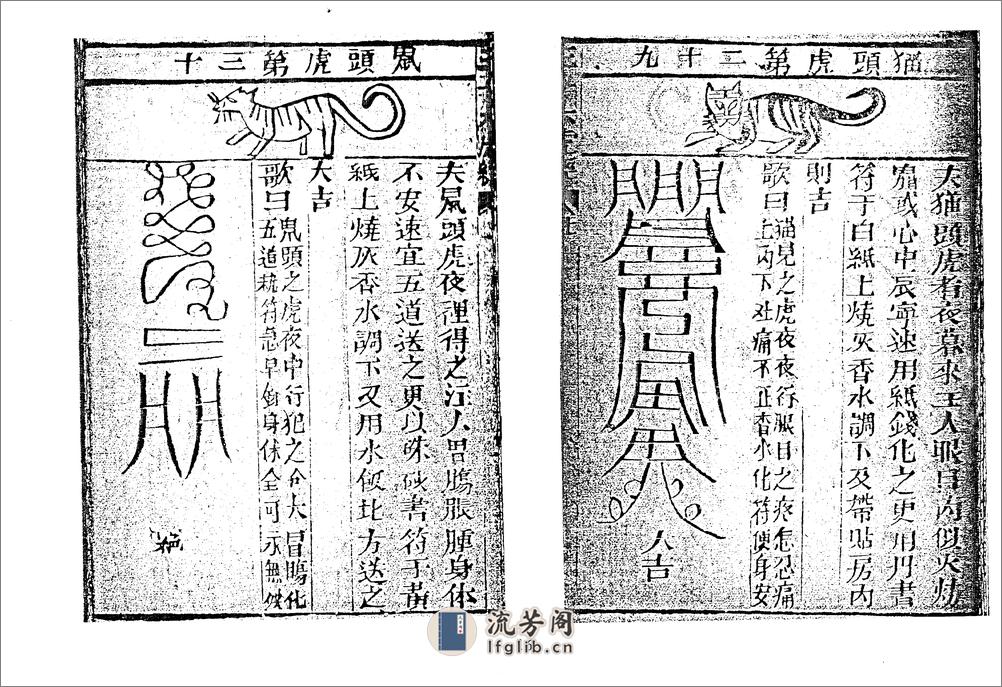 猫頭虎第二十九
夫猫頭虎者夜暮來主人眼目內似火燒
或心中 寧速用紙錢化之更用丹書
符于白紙上燒灰香水調下及帶貼房內
則吉
歌曰
猫兒之虎夜夜行眼目之疼怎忍痛
上內下 痛不止香水化符便身安
人吉
鼠頭虎第三十
夫鼠頭虎夜裡得之注人胃腸脹腫身体
不安速宜五道送之更以硃砂書符于黃
紙上燒灰香水調下又用水飯北方送之
大吉
歌曰
鼠頭之虎夜中行犯之 大冒腸化
五道 符急早 身体全可永無
流芳阁
lfglib.cn